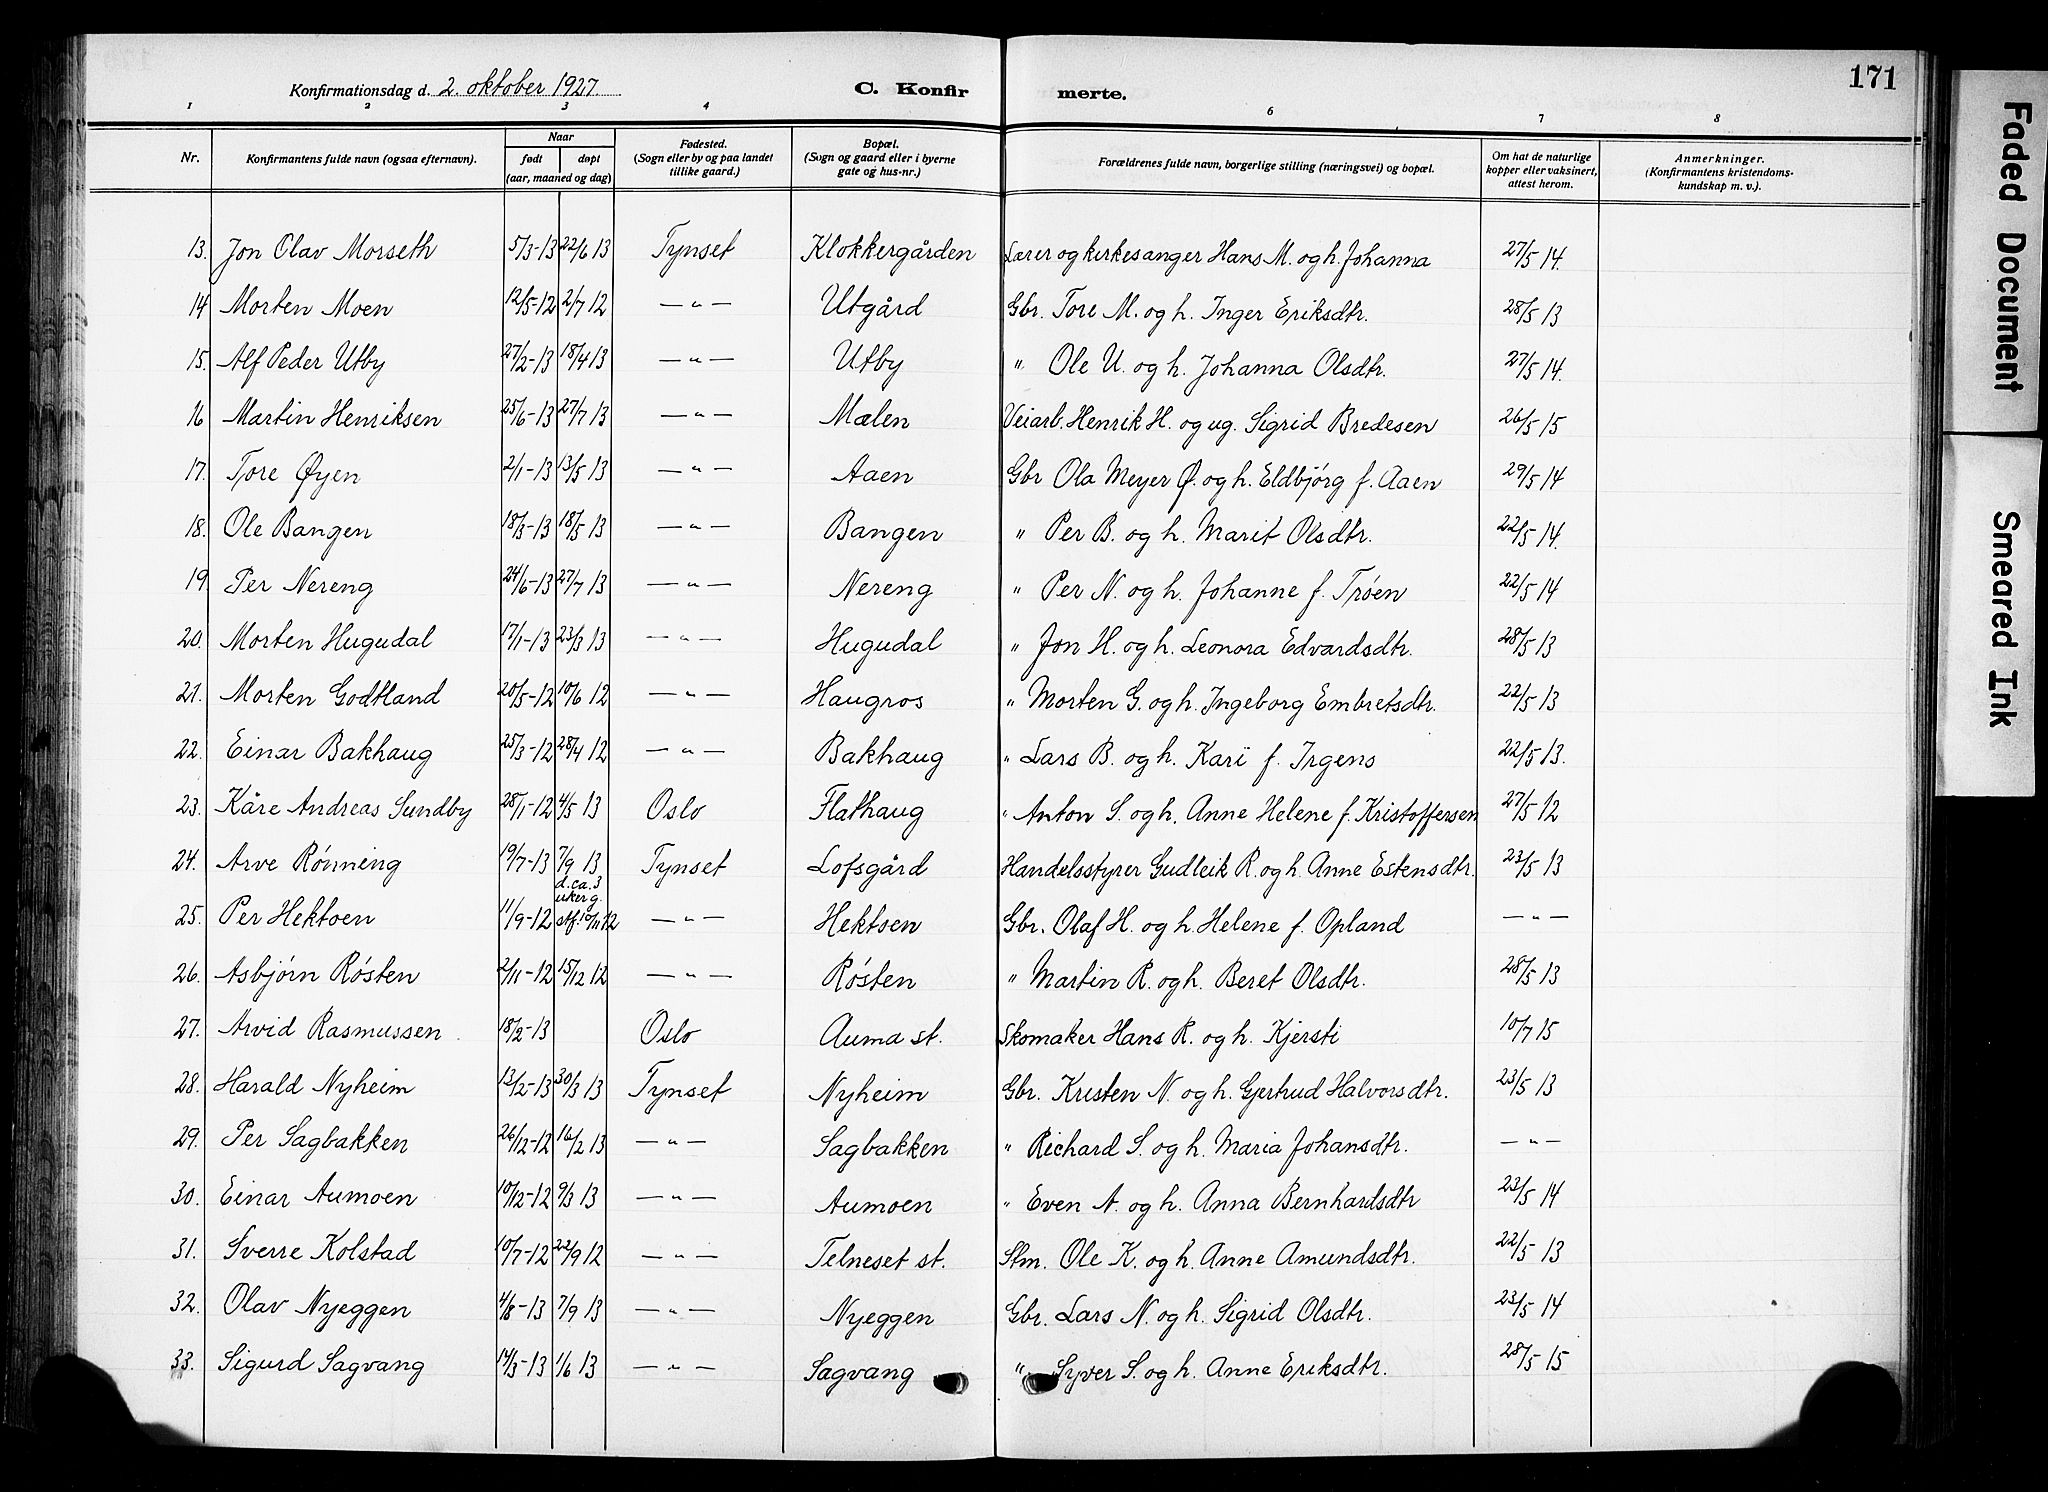 171
Konfirmationsdag d. 2. oktober 1927. C. Konfirmerte.
1 2 3 4 5 6 7 8
Nr. Konfirmantens fulde navn (ogsaa efternavn). Naar født døpt (aar, maaned og dag) Fødested. (Sogn eller by og paa landet tillike gaard.) Bopæl. (Sogn og gaard eller i byerne gate og hus-nr.) Forældrenes fulde navn, borgerlige stilling (næringsvei) og bopæl. Om hat de naturlige kopper eller vaksinert, attest herom. Anmerkninger. (Konfirmantens kristendomskundskap m. v.).
13. Jon Olav Morseth 5/3-13 22/6 13 Tynset Klokkergården Lærer og kirkesanger Hans M. og h. Johanna 27/5 14.
14 Morten Moen 12/5-12 2/7 12 —〃— Utgård Gbr. Tore M. og h. Inger Eriksdtr. 28/5 13
15. Alf Peder Utby 27/2-13 18/4 13 —〃— Utby 〃 Ole U. og h. Johanna Olsdtr. 27/5 14.
16 Martin Henriksen 25/6-13 27/7 13 —〃— Mælen Veiarb. Henrik H. og ug. Sigrid Bredesen 26/5 15
17. Tore Øyen 2/1-13 13/5 13 —〃— Aaen Gbr Ola Meyer Ø. og h. Eldbjórg f. Aaen 29/5 14
18. Ole Bangen 18/3-13 18/5 13 —〃— Bangen 〃 Per B. og h. Marit Olsdtr. 22/5 14.
19 Per Nereng 24/6-13 27/7 13 —〃— Nereng 〃 Per N. og h. Johanne f. Trøen 22/5 14
20. Morten Hugudal 17/1-13 23/3 13 —〃— Hugudal 〃 Jon H. og h. Leonora Edvardsdtr. 28/5 13
21. Morten Godtland 20/5-12 10/6 12 —〃— Haugros 〃 Morten G. og h. Ingeborg Embretsdtr. 22/5 13
22. Einar Bakhaug 25/3-12 28/4 12 —〃— Bakhaug 〃 Lars B. og h. Kari f. Irgens 22/5 13.
23. Kåre Andreas Sundby 28/1-12 4/5 13 Oslo Flathaug 〃 Anton S. og h. Anne Helene f. Kristoffersen 27/5 12
24. Arve Rónning 19/7-13 7/9 13 Tynset Lofsgård Handelsstyrer Gudleik R. og h. Anne Estensdtr. 23/5 13
25. Per Hektoen 11/9-12 d. ca. 3 uker g. stf. 10/11 12 —〃— Hektoen Gbr. Olaf H. og h. Helene f. Opland —〃—
26. Asbjórn Rósten 2/11-12 15/12 12 —〃— Rósten 〃 Martin R. og h. Beret Olsdtr. 28/5 13
27. Arvid Rasmussen 18/2-13 Oslo Auma st. Skomaker Hans R. og h. Kjersti 10/7 15
28. Harald Nyheim 13/2-13 30/3 13 Tynset Nyheim Gbr. Kristen N. og h. Gjertrud Halvorsdtr. 23/5 13
29. Per Sagbakken 26/12-12 16/2 13 —〃— Sagbakken 〃 Richard S. og h. Maria Johansdtr. —〃—
30. Einar Aumoen 10/12-12 9/3 13 —〃— Aumoen 〃 Even A. og h. Anna Bernhardsdtr 23/5 14
31. Sverre Kolstad 10/7-12 22/9 12 —〃— Telneset st. Stm. Ole K. og h. Anne Amundsdtr. 22/5 13
32. Olav Nyeggen 4/8-13 7/9 13 —〃— Nyeggen Gbr. Lars N. og h. Sigrid Olsdtr. 23/5 14
33. Sigurd Sagvang 14/3-13 1/6 13 —〃— Sagvang 〃 Syver S. og h. Anne Eriksdtr. 28/5 15
Faded Document
Smeared Ink